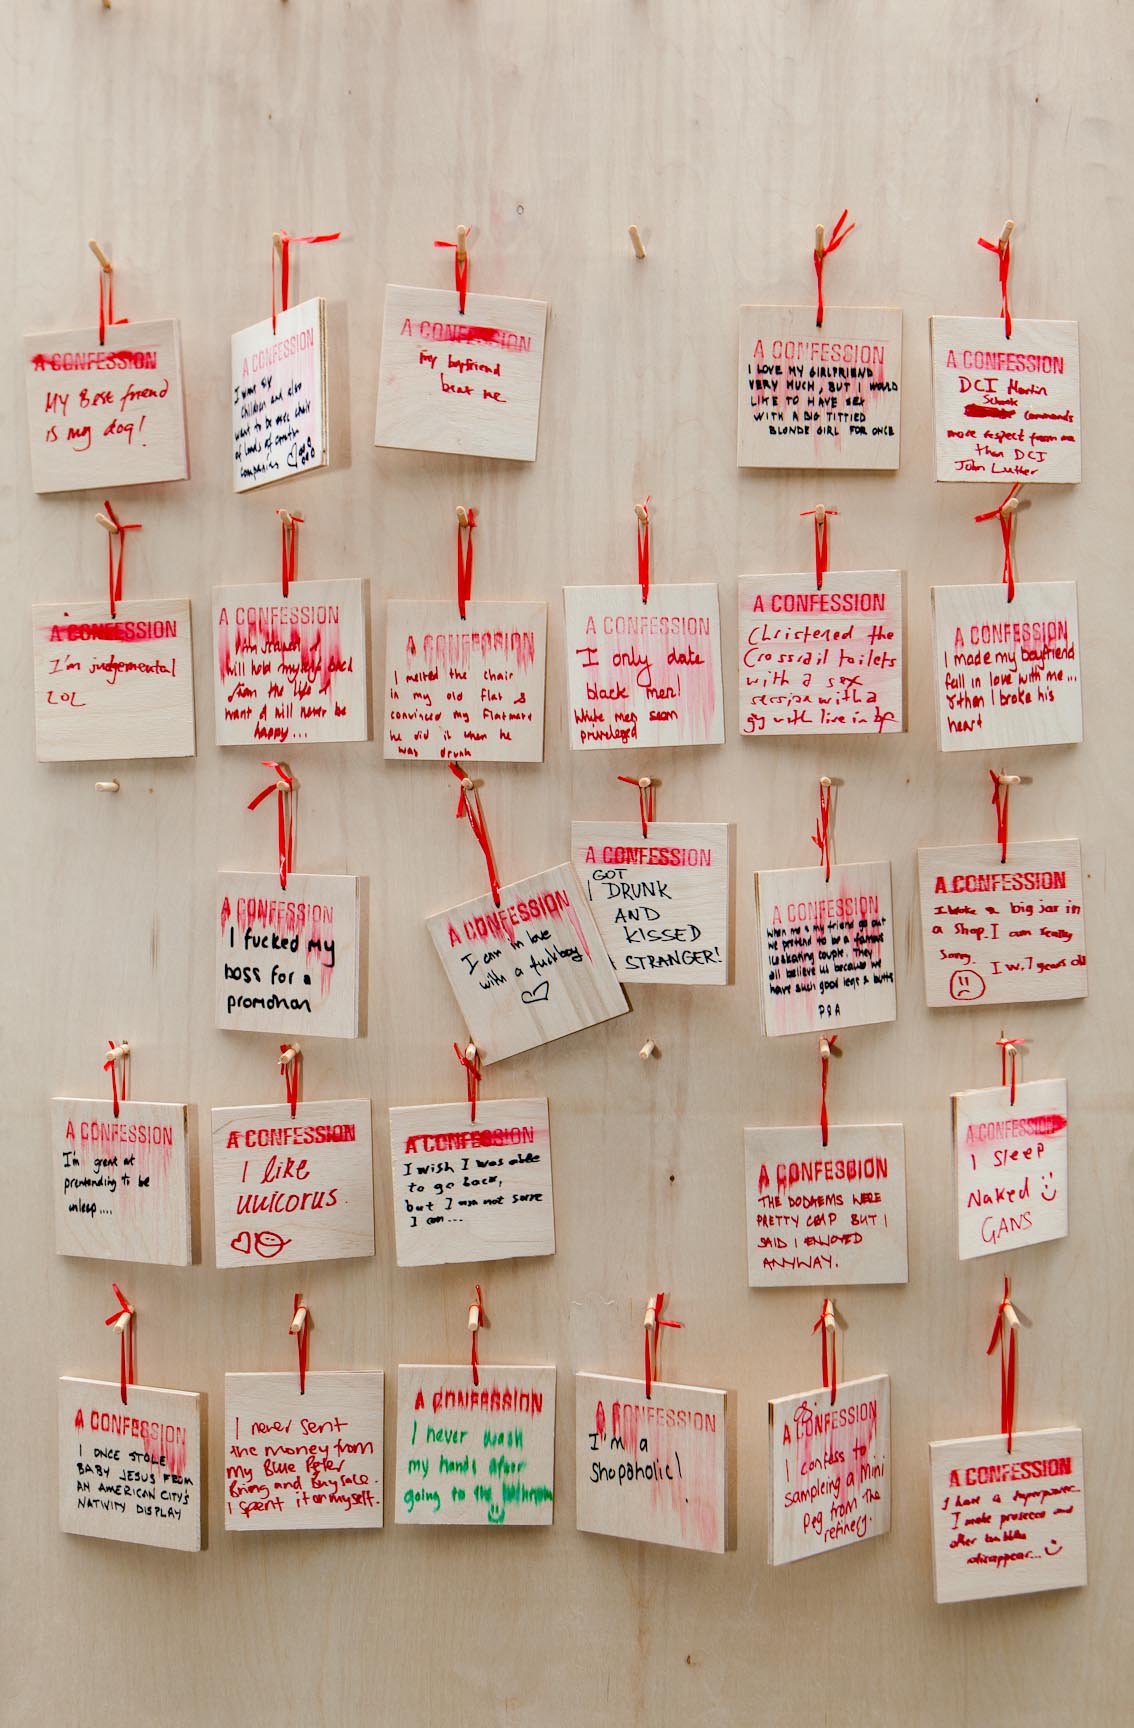 A CONFESSION
My Best friend
is my dog!
A CONFESSION
I want six
children and also
want to be exec chair
of loads of
companies
A CONFESSION
my boyfriend
beat me
A CONFESSION
I LOVE MY GIRLFRIEND
VERY MUCH, BUT I WOULD
LIKE TO HAVE SEX
WITH A BIG TITTIED
BLONDE GIRL FOR ONCE
A CONFESSION
DCI Martin
Schenk
commands
more respect from me
than DCI
John Luther
A CONFESSION
I'm judgemental
LOL
A CONFESSION
I
will hold myself back
from the life I
want & will never be
happy...
A CONFESSION
I melted the chair
in my old flat &
convinced my flatmate
he did it when he
was drunk
A CONFESSION
I only date
black men!
White men seem
privileged
A CONFESSION
Christened the
Crossrail toilets
with a sex
session with a
guy with live in bf
A CONFESSION
I made my boyfriend
fall in love with me...
& then I broke his
heart
A CONFESSION
I fucked my
boss for a
promotion
A CONFESSION
I am in love
with a fuckboy
A CONFESSION
GOT
I DRUNK
AND
KISSED
A STRANGER!
A CONFESSION
When me & my friend go out
we pretend to be a famous
iceskating couple. They
all believe us because we
have such good legs & butts
P&A
A CONFESSION
I broke a big jar in
a shop. I am really
sorry.
I w. 7 years old
A CONFESSION
I'm great at
pretending to be
asleep....
A CONFESSION
I like
unicorns.
A CONFESSION
I wish I was able
to go back,
but I am not sure
I am...
A CONFESSION
THE DODGEMS WERE
PRETTY CRAP BUT I
SAID I ENJOYED
ANYWAY.
A CONFESSION
I Sleep
Naked
GANS
A CONFESSION
I ONCE STOLE
BABY JESUS FROM
AN AMERICAN CITY'S
NATIVITY DISPLAY
I never sent
the money from
my Blue Peter
Bring and Buy sale.
I spent it on myself.
A CONFESSION
I never wash
my hands after
going to the bathroom
A CONFESSION
I'm a
Shopaholic!
A CONFESSION
I confess to
sampleing a Mini
Peg from the
refinery.
A CONFESSION
I have a superpower.
I make prosecco and
other bubbles
disappear...